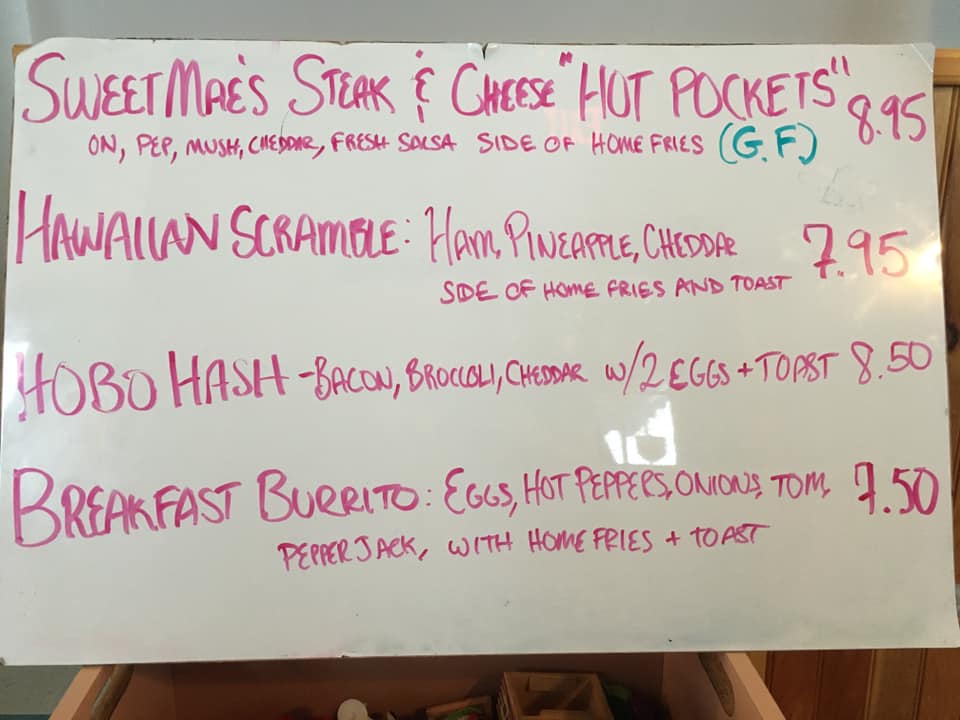 SWEET MAE'S STEAK & CHEESE "HOT POCKETS" 8.95
ON, PEP, MUSH, CHEDDAR, FRESH SALSA SIDE OF HOME FRIES (G.F)
HAWAIIAN SCRAMBLE: HAM, PINEAPPLE, CHEDDAR 7.95
SIDE OF HOME FRIES AND TOAST
HOBO HASH - BACON, BROCCOLI, CHEDDAR W/2 EGGS + TOAST 8.50
BREAKFAST BURRITO: EGGS, HOT PEPPERS, ONIONS, TOM, 7.50
PEPPER JACK, WITH HOME FRIES + TOAST